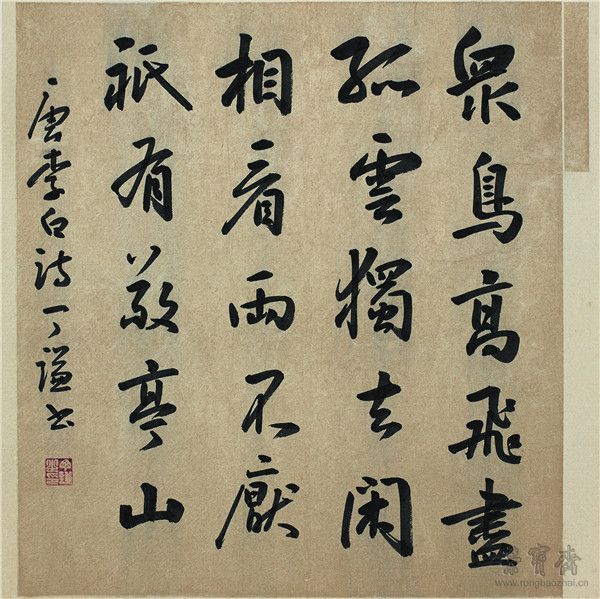 眾鳥高飛盡
孤雲獨去閑
相看兩不厭
祇有敬亭山
唐李白詩丁謙書
榮寶齋
www.rongbaozhai.cn